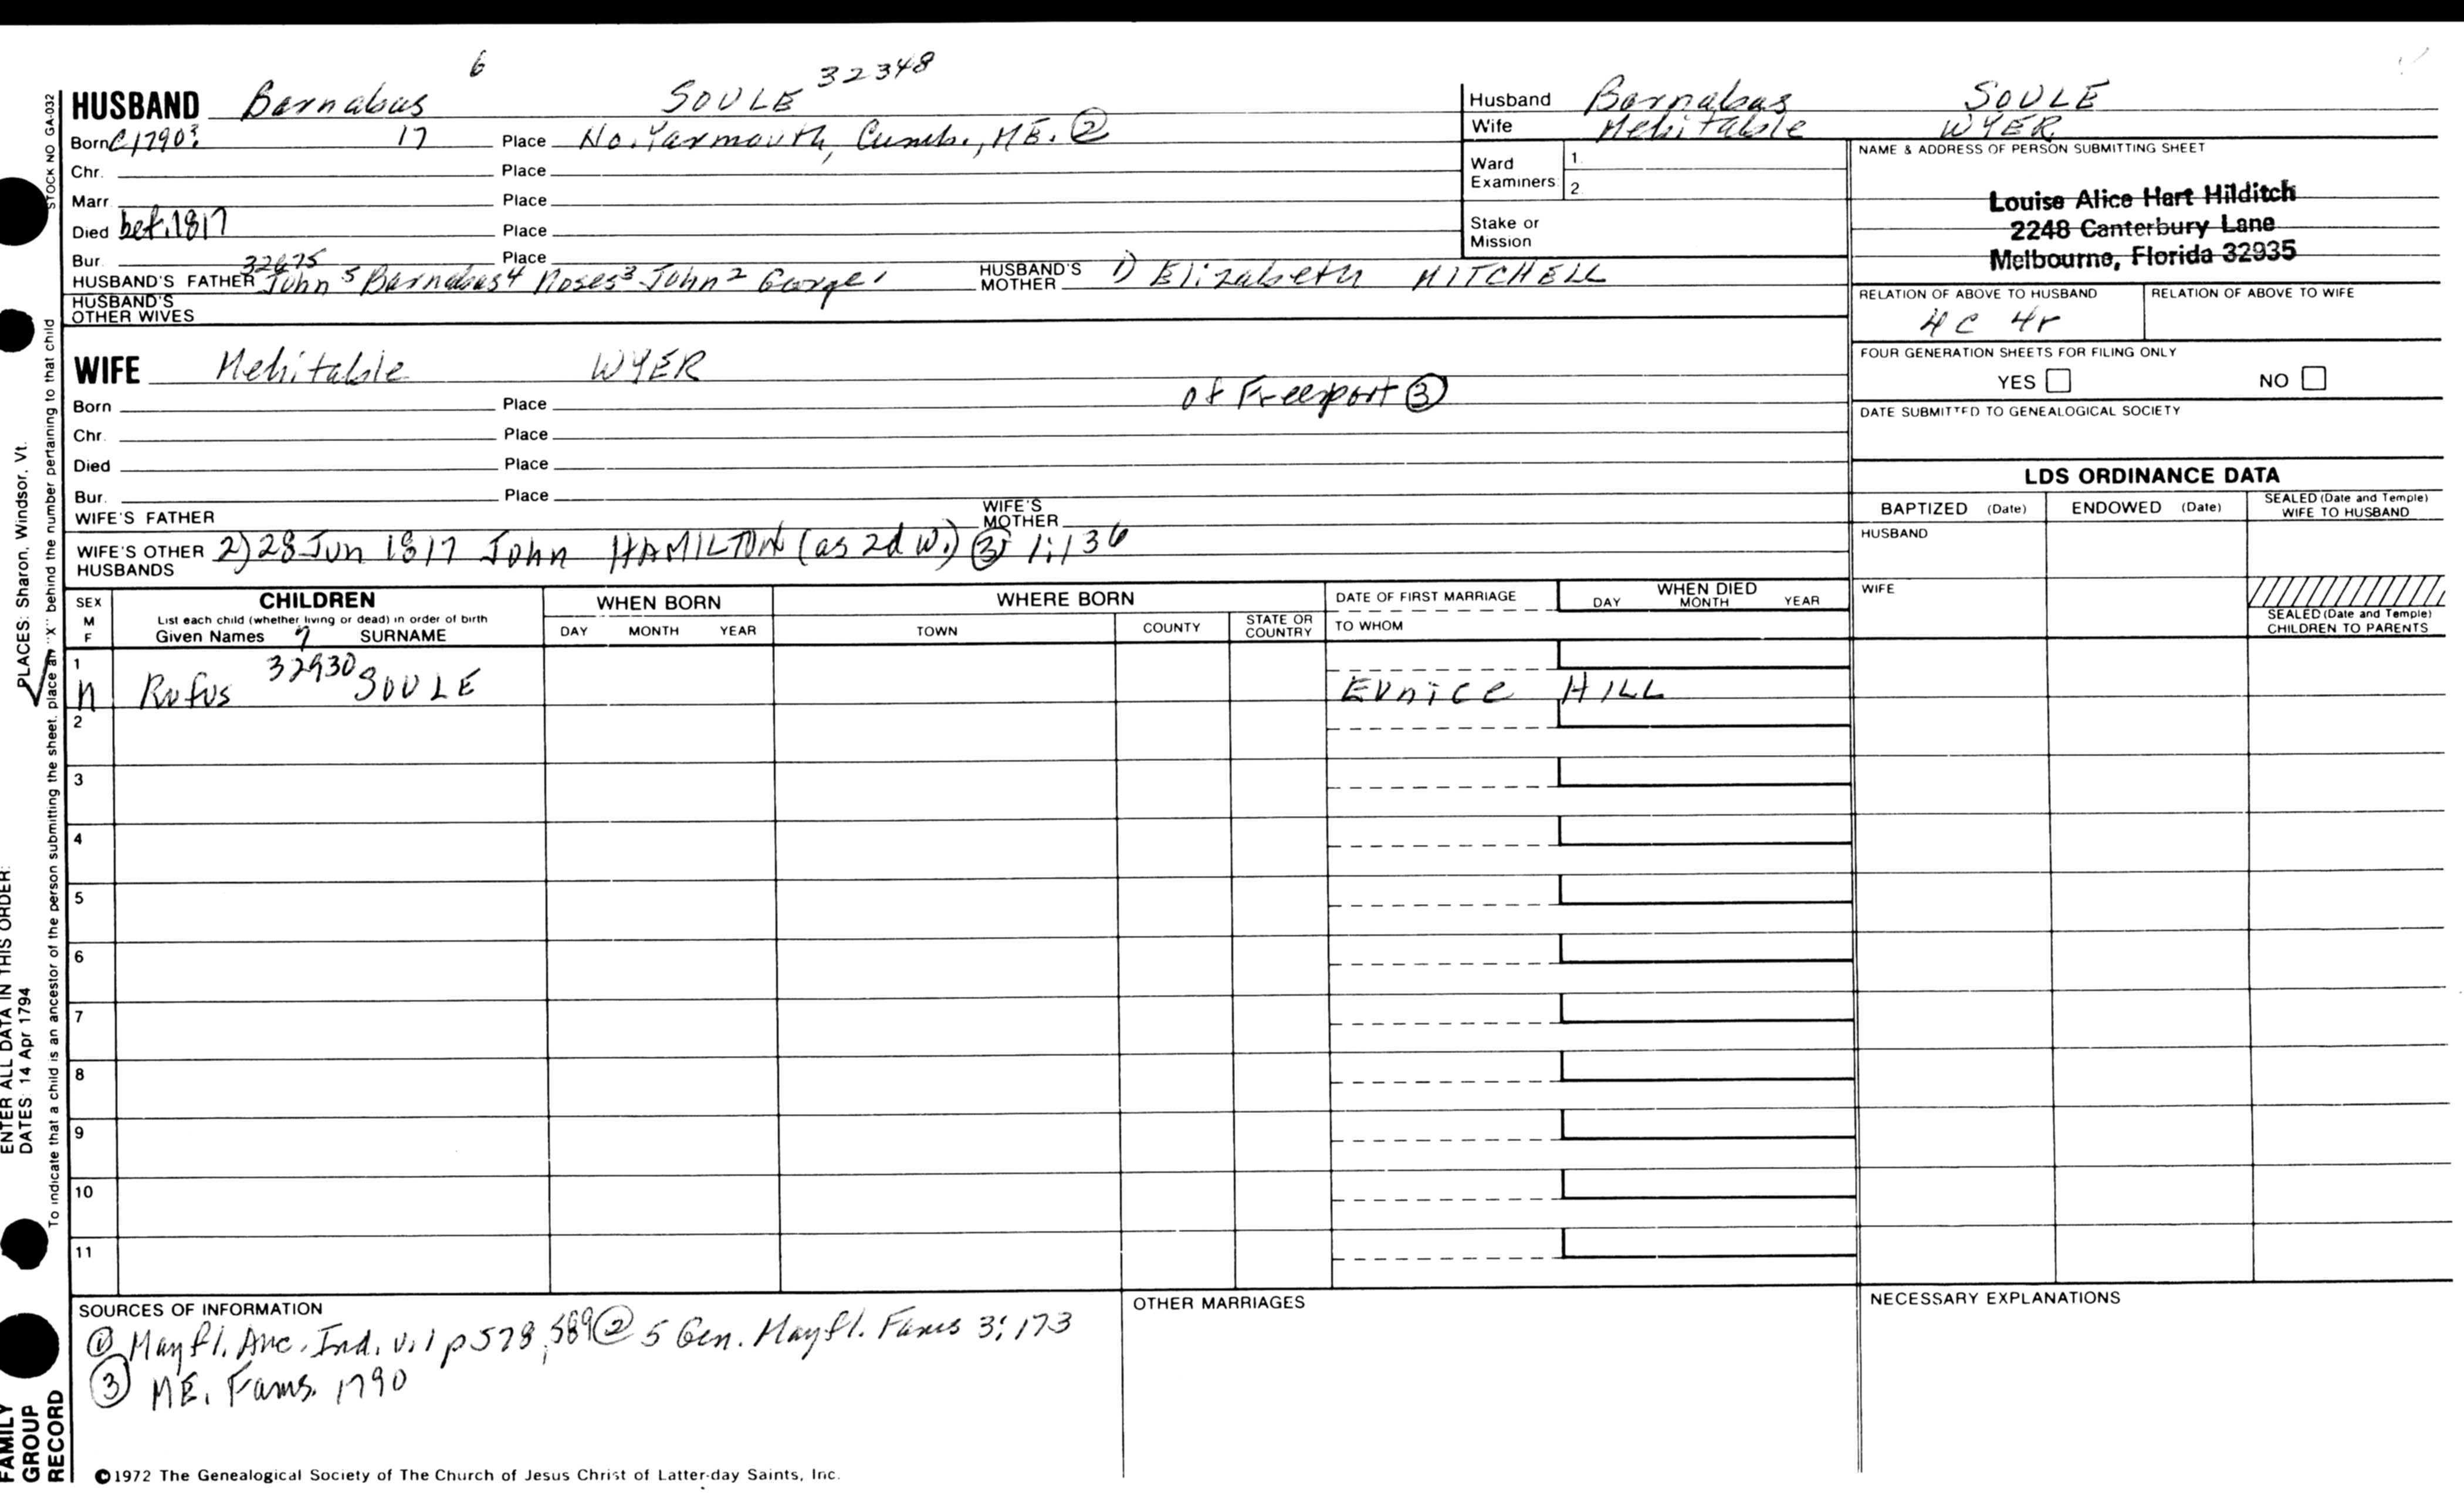 6
HUSBAND Barnabas SOULE 32348
Born C1790? 17 Place No. Yarmouth, Cumb., ME. ②
Chr. Place
Marr Place
Died bef. 1817 Place
Bur. Place
32675
HUSBAND'S FATHER John 5 Barnabas 4 Moses 3 John 2 George 1 HUSBAND'S MOTHER 1) Elizabeth MITCHELL
HUSBAND'S OTHER WIVES
WIFE Mehitable WYER
of Freeport ③
Born Place
Chr. Place
Died Place
Bur. Place
WIFE'S FATHER WIFE'S MOTHER
WIFE'S OTHER HUSBANDS 2) 28 Jun 1817 John HAMILTON (as 2d w.) ③ 1:136
Husband Barnabas SOULE
Wife Mehitable WYER
Ward Examiners 1. 2.
Stake or Mission
NAME & ADDRESS OF PERSON SUBMITTING SHEET
Louise Alice Hart Hilditch
2248 Canterbury Lane
Melbourne, Florida 32935
RELATION OF ABOVE TO HUSBAND RELATION OF ABOVE TO WIFE
4C 4r
FOUR GENERATION SHEETS FOR FILING ONLY
YES NO
DATE SUBMITTED TO GENEALOGICAL SOCIETY
LDS ORDINANCE DATA
BAPTIZED (Date) ENDOWED (Date) SEALED (Date and Temple) WIFE TO HUSBAND
HUSBAND
WIFE
SEALED (Date and Temple) CHILDREN TO PARENTS
SEX M F
CHILDREN
List each child (whether living or dead) in order of birth
Given Names 7 SURNAME
WHEN BORN
DAY MONTH YEAR
WHERE BORN
TOWN COUNTY STATE OR COUNTRY
DATE OF FIRST MARRIAGE
TO WHOM
WHEN DIED
DAY MONTH YEAR
1
M Rufus 32930 SOULE EUNICE HILL
2
3
4
5
6
7
8
9
10
11
SOURCES OF INFORMATION
① Mayfl. Anc. Ind. v. 1 p 578, 589 ② 5 Gen. Mayfl. Fams 3:173
③ ME. Fams. 1790
OTHER MARRIAGES
NECESSARY EXPLANATIONS
©1972 The Genealogical Society of The Church of Jesus Christ of Latter-day Saints, Inc.
STOCK NO GA-032
To indicate that a child is an ancestor of the person submitting the sheet, place an "X" behind the number pertaining to that child
PLACES: Sharon, Windsor, Vt.
ENTER ALL DATA IN THIS ORDER:
DATES: 14 Apr 1794
FAMILY
GROUP
RECORD